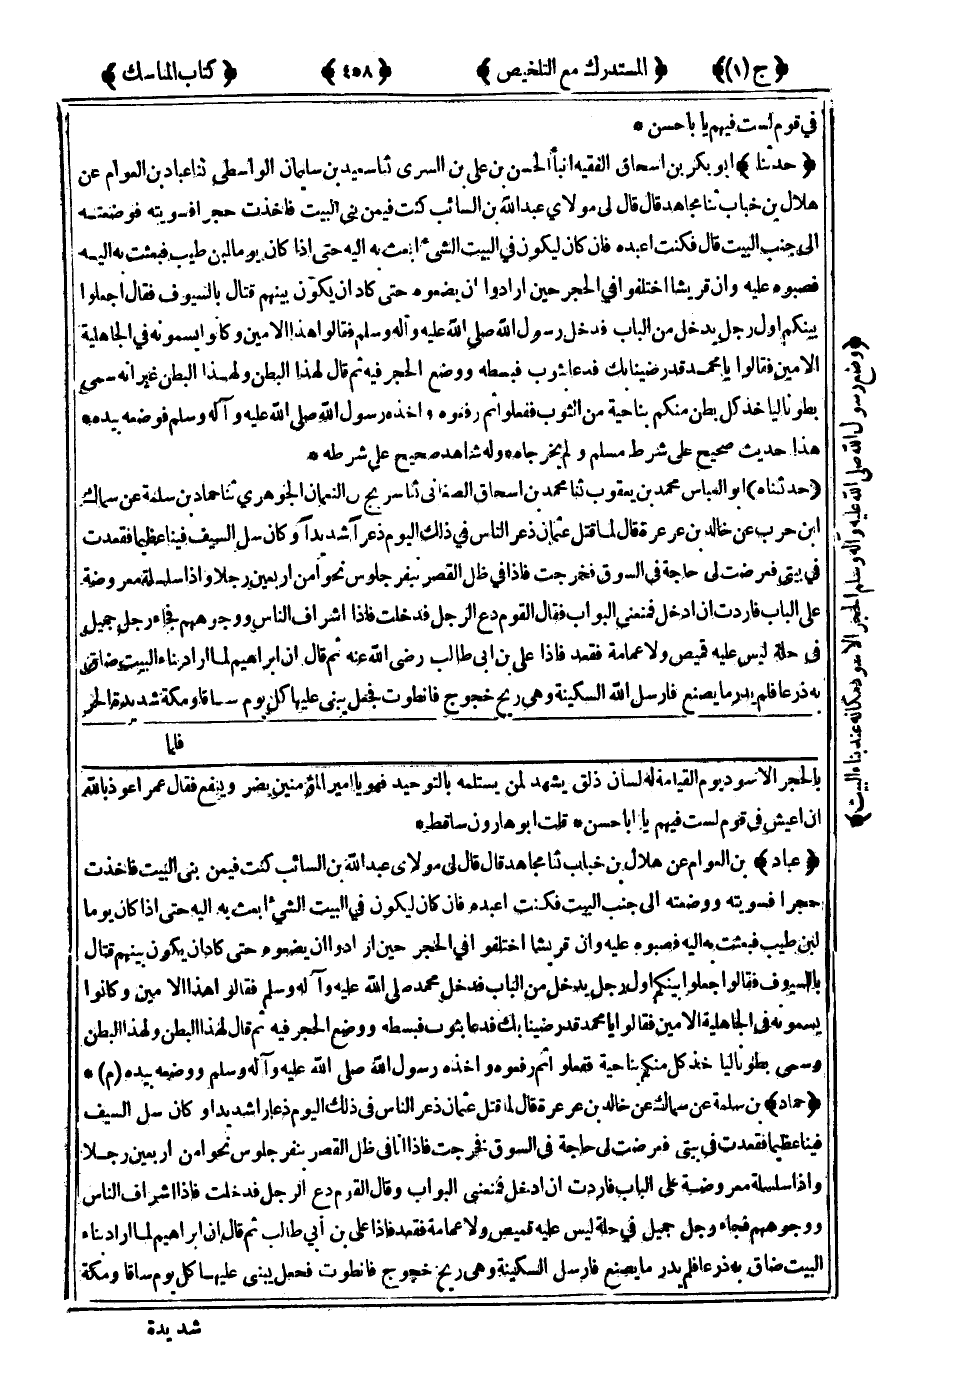 ﴿ ج (١) ﴾ ﴿ المستدرك مع التلخيص ﴾ ﴿ ٤٥٨ ﴾ ﴿ كتاب المناسك ﴾
في قوم لست فيهم يا با حسن *
﴿ حدثنا ﴾ ابو بكر بن اسحاق الفقيه انبأ الحسن بن علي بن السرى ثنا سعيد بن سليمان الواسطي ثنا عباد بن العوام عن
هلال بن خباب ثنا مجاهد قال قال لى مولاي عبد الله بن السائب كنت فيمن بنى البيت فاخذت حجرا فسويته فوضعته
الى جنب البيت قال فكنت اعبده فان كان ليكون في البيت الشئ ابعث به اليه حتى اذا كان يوما لبن طيب فبعثت به اليه
فصبوه عليه وان قريشا اختلفوا في الحجر حين ارادوا ان يضعوه حتى كاد ان يكون بينهم قتال بالسيوف فقال اجعلوا
بينكم اول رجل يدخل من الباب فدخل رسول الله صلى الله عليه وآله وسلم فقالوا هذا الامين وكانوا يسمونه في الجاهلية
الامين فقالوا يا محمد قد رضينا بك فدعا بثوب فبسطه ووضع الحجر فيه ثم قال لهذا البطن ولهذا البطن غير انه سمى
بطونا ليا خذ كل بطن منكم بناحية من الثوب ففعلوا ثم رفعوه واخذه رسول الله صلى الله عليه وآله وسلم فوضعه بيده *
هذا حديث صحيح على شرط مسلم ولم يخرجاه * وله شاهد صحيح على شرطه *
(حدثناه) ابو العباس محمد بن يعقوب ثنا محمد بن اسحاق الصغانى ثنا سريج بن النعمان الجوهري ثنا حماد بن سلمة عن سماك
ابن حرب عن خالد بن عرعرة قال لما قتل عثمان ذعر الناس في ذلك اليوم ذعرا شديدا وكان سل السيف فينا عظيما فقعدت
في بيتى فعرضت لى حاجة في السوق فخرجت فاذا في ظل القصر بنفر جلوس نحوا من اربعين رجلا واذا سلسلة معروضة
على الباب فاردت ان ادخل فمنعنى البواب فقال القوم دع الرجل فدخلت فاذا اشراف الناس ووجوههم فجاء رجل جميل
في حلة ليس عليه قميص ولا عمامة فقعد فاذا علي بن ابى طالب رضى الله عنه ثم قال ان ابراهيم لما اراد بناء البيت ضاق
به ذرعا فلم يدر ما يصنع فارسل الله السكينة وهى ريح خجوج فانطوت فجعل يبنى عليها كل يوم ساقا ومكة شديدة الحر
فلما
﴿ وضع رسول الله صلى الله عليه وآله وسلم الحجر الاسود مكانه عند بناء البيت ﴾
بالحجر الاسود يوم القيامة له لسان ذلق يشهد لمن يستلمه بالتوحيد فهو يا امير المؤمنين يضر وينفع فقال عمر اعوذ بالله
ان اعيش في قوم لست فيهم يا ابا حسن * قلت ابو هارون ساقط *
﴿ عباد ﴾ بن العوام عن هلال بن خباب ثنا مجاهد قال قال لى مولاى عبد الله بن السائب كنت فيمن بنى البيت فاخذت
حجرا فسويته ووضعته الى جنب البيت فكنت اعبده فان كان ليكون في البيت الشئ ابعث به اليه حتى اذا كان يوما
لبن طيب فبعثت به اليه فصبوه عليه وان قريشا اختلفوا في الحجر حين ارادوا ان يضعوه حتى كاد ان يكون بينهم قتال
بالسيوف فقالوا اجعلوا بينكم اول رجل يدخل من الباب فدخل محمد صلى الله عليه وآله وسلم فقالوا هذا الامين وكانوا
يسمونه في الجاهلية الامين فقالوا يا محمد قد رضينا بك فدعا بثوب فبسطه ووضع الحجر فيه ثم قال لهذا البطن ولهذا البطن
وسمى بطونا ليا خذ كل منكم بناحية ففعلوا ثم رفعوه واخذه رسول الله صلى الله عليه وآله وسلم ووضعه بيده (م) *
﴿ حماد ﴾ بن سلمة عن سماك عن خالد بن عرعرة قال لما قتل عثمان ذعر الناس في ذلك اليوم ذعرا شديدا وكان سل السيف
فينا عظيما فقعدت في بيتى فعرضت لى حاجة في السوق فخرجت فاذا انا في ظل القصر بنفر جلوس نحوا من اربعين رجلا
واذا سلسلة معروضة على الباب فاردت ان ادخل فمنعنى البواب وقال القوم دع الرجل فدخلت فاذا اشراف الناس
ووجوههم فجاء وجل جميل في حلة ليس عليه قميص ولا عمامة فقعد فاذا على بن أبي طالب ثم قال ان ابراهيم لما اراد بناء
البيت ضاق به ذرعا فلم يدر ما يصنع فارسل السكينة وهى ريح خجوج فانطوت فجعل يبنى عليها كل يوم ساقا ومكة
شديدة